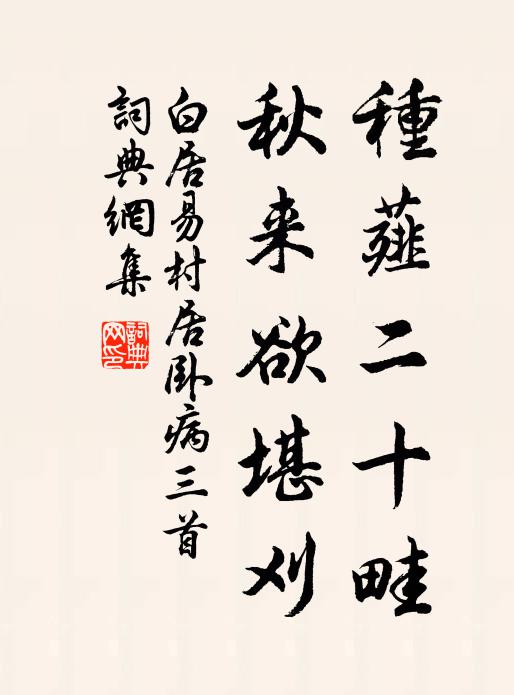 種薤二十畦
秋来欲堪刈
白居易村居卧病三首
詞典網集
詞典
网印